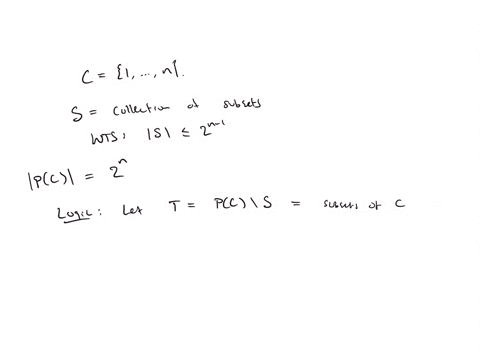 C = {1, ..., n}.
S = collection of subsets
WTS: |S| ≤ 2^{n-1}
|P(C)| = 2^n
Logic: Let T = P(C) \ S = subsets of C